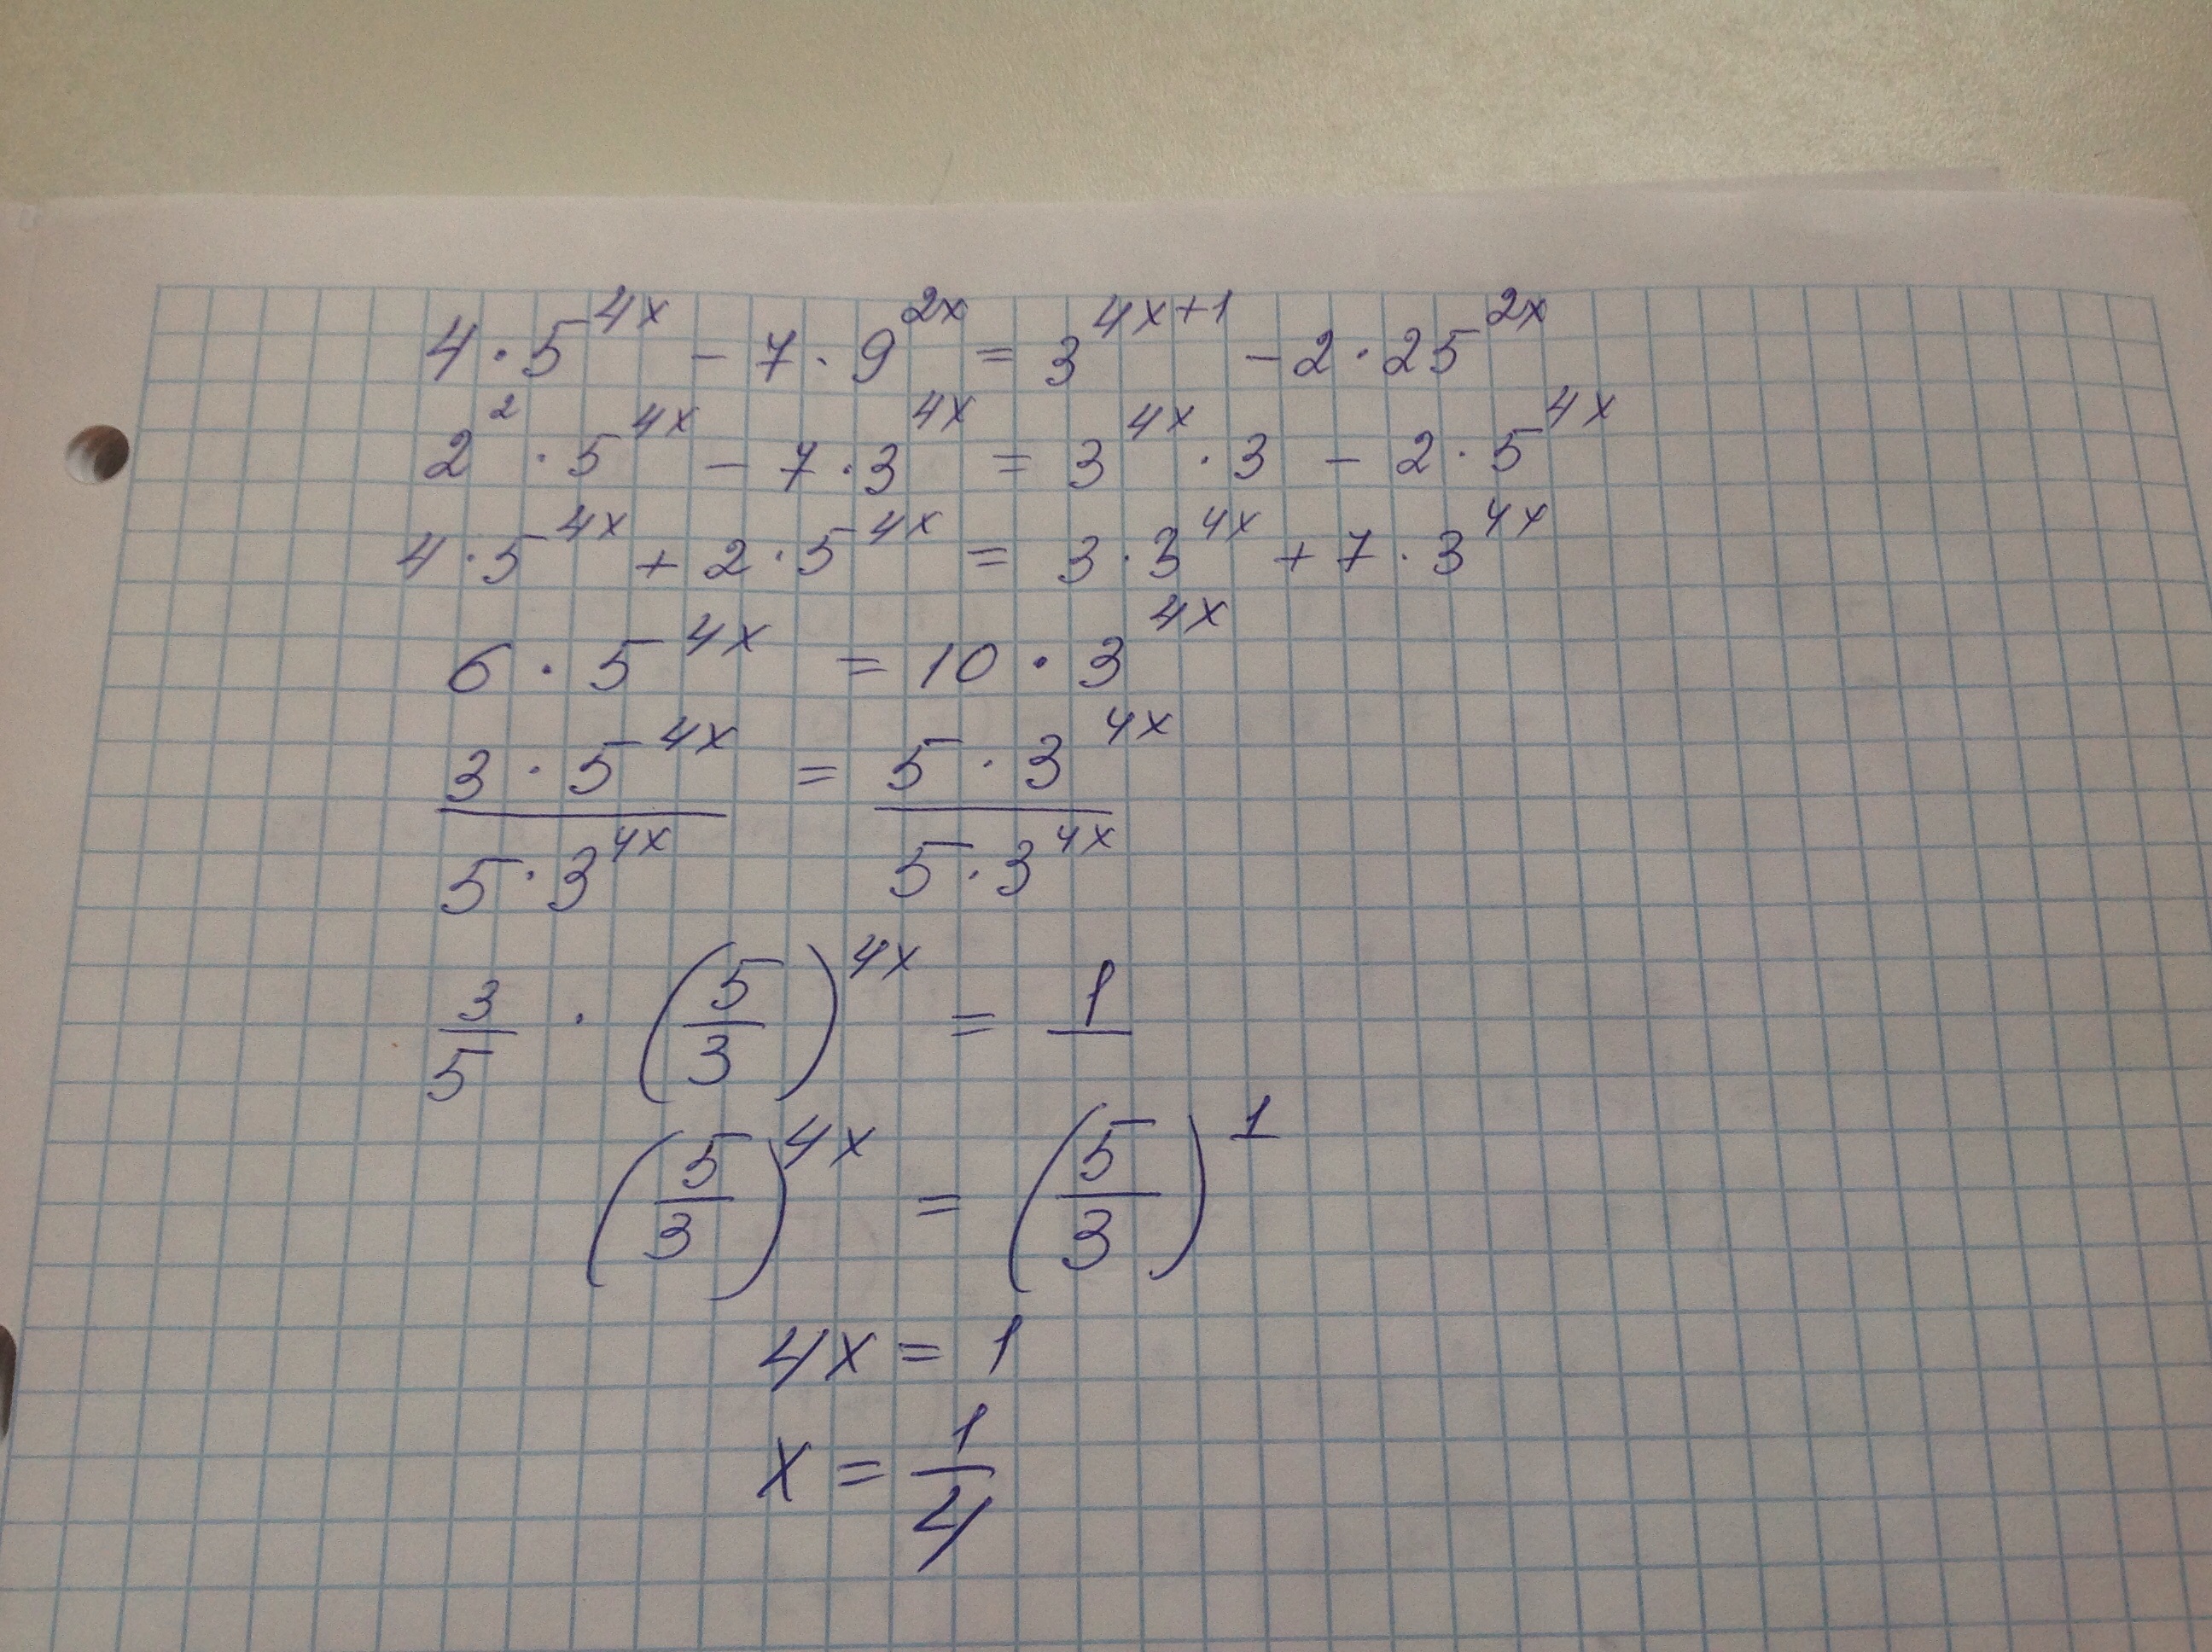 4 · 5^{4x} - 7 · 9^{2x} = 3^{4x+1} - 2 · 25^{2x}
2^2 · 5^{4x} - 7 · 3^{4x} = 3^{4x} · 3 - 2 · 5^{4x}
4 · 5^{4x} + 2 · 5^{4x} = 3 · 3^{4x} + 7 · 3^{4x}
6 · 5^{4x} = 10 · 3^{4x}
\frac{3 · 5^{4x}}{5 · 3^{4x}} = \frac{5 · 3^{4x}}{5 · 3^{4x}}
\frac{3}{5} · (\frac{5}{3})^{4x} = 1
(\frac{5}{3})^{4x} = (\frac{5}{3})^1
4x = 1
x = \frac{1}{4}